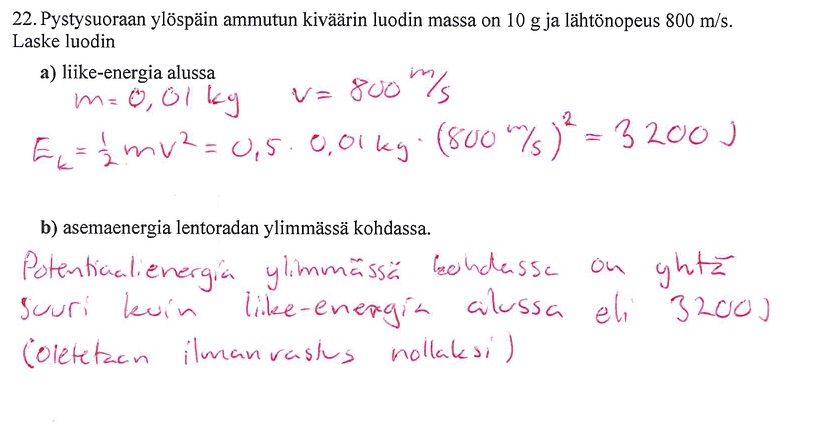 22. Pystysuoraan ylöspäin ammutun kiväärin luodin massa on 10 g ja lähtönopeus 800 m/s.
Laske luodin
a) liike-energia alussa
m = 0,01 kg v = 800 m/s
E_k = 1/2 mv² = 0,5 · 0,01 kg · (800 m/s)² = 3200 J
b) asemaenergia lentoradan ylimmässä kohdassa.
Potentiaalienergia ylimmässä kohdassa on yhtä
suuri kuin liike-energia alussa eli 3200 J
(oletetaan ilmanvastus nollaksi)